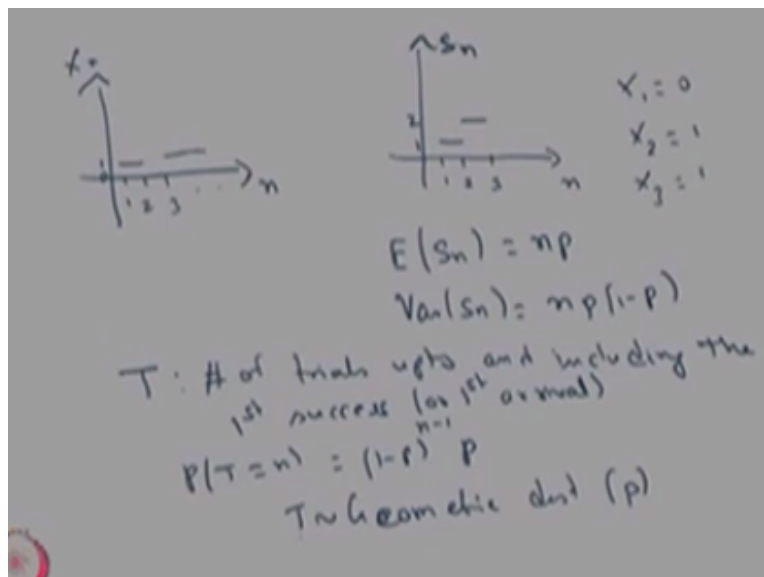 Xn
1
0
1 2 3 . . n
Sn
2
1
1 2 3 n
X₁ = 0
X₂ = 1
X₃ = 1
E(Sn) = np
Var(Sn) = np(1-p)
T : # of trials upto and including the
1st success (or 1st arrival)
P(T = n) = (1-p)ⁿ⁻¹ p
T ~ Geometric dist (p)